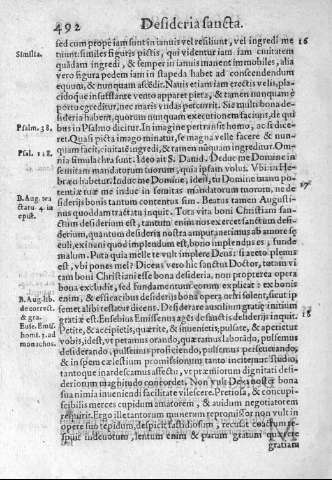 492 Desideria sancta.
sed cum propè iam sunt in ianuis vel resiliunt, vel ingredi me 16
Similia. tuunt: similes figuris pictis, qui videntur iam iam ciuitatem
quãdam ingredi, & semper in ianuis manent immobiles, alia
vero figura pedem iam in stapeda habet ad conscendendum
equum, & nunquam ascẽdit. Nauis etiam iam erectis velis, placidoque
insufflante vento apparet picta, & tamen nunquam è
portu egreditur, nec maris vndas percurrit. Sic multi bona desideria
habent, quorum nunquam executionem faciunt, de quibus
Psalm. 38. in Psalmo dicitur. In imagine pertransit homo, os si diceret.
Quasi picta imago minatur, se magna velle facere & nunquam
Psal. 118. facit, initatẽ ingredi, & tamen nũquam ingreditur. Omnia
simulachra sunt. Ideo ait S. Dauid. Deduc me Domine in
semitam mandatorum tuorum, quia ipsam volui. Vbi in Hebræo
habetur. Induc me Domine, idest, tu Domine manu potentiæ
tuæ me induc in semitas mandatorum tuorum, ne desiderijs 17
B. Aug. tra bonis tantum contentus sim. Beatus tamen Augustinus
ctatu 4. in quoddam tractatu inquit. Tota vita boni Christiani sanctum
epist. desiderium est, tantum enim nos exercet sanctum desiderium,
quantum desideria nostra amputauerimus ab amore seculi,
exinani quod implendum est, bono implendus es, funde
malum. Puta quia melle te vult implere Deus: si aceto plenus
est, vbi pones mel? Dices vero hic sanctus Doctor, totam vitam
boni Christiani esse bona desideria, non propterea opera
bona excludit, sed fundamentum eorum explicat: ex bonis
B. Aug. lib. enim, & efficacibus desiderijs bona opera oriri solent, sicut ipsemet
de correct. alibi restatur dicens. Desiderare auxilium gratiæ initium
& gra. gratiæ est. Eusebius Emissenus agẽs de sanctis desiderijs inquit. 18
Euse. Emiss. Petite, & accipietis, quærite, & inuenietis, pulsate, & aperietur
homi. 3. ad vobis, idest, vt petamus orando, quæramus laborando, pulsemus
monachos. desiderando, pulsemus proficiendo, pulsemus perseuerando,
& in spem cælestium promissionum tanto incitemur studio,
tantoque inardescamus affectu, vt præmiorum dignitati desideriorum
magnitudo concordet. Non vult Deus noster bona
sua nimia inueniendi facilitate vilescere. Pretiosa, & concupiscibilis
merces cupidum amatorem, & auidum negotiatorem
requirit. Ergo ille tantorum munerum repromissor non vult in
opere suo tepidum, despicit fastidiosum, recusat coactum, respuit
indeuotum, lentum enim & parum gratum quærere
gratiam